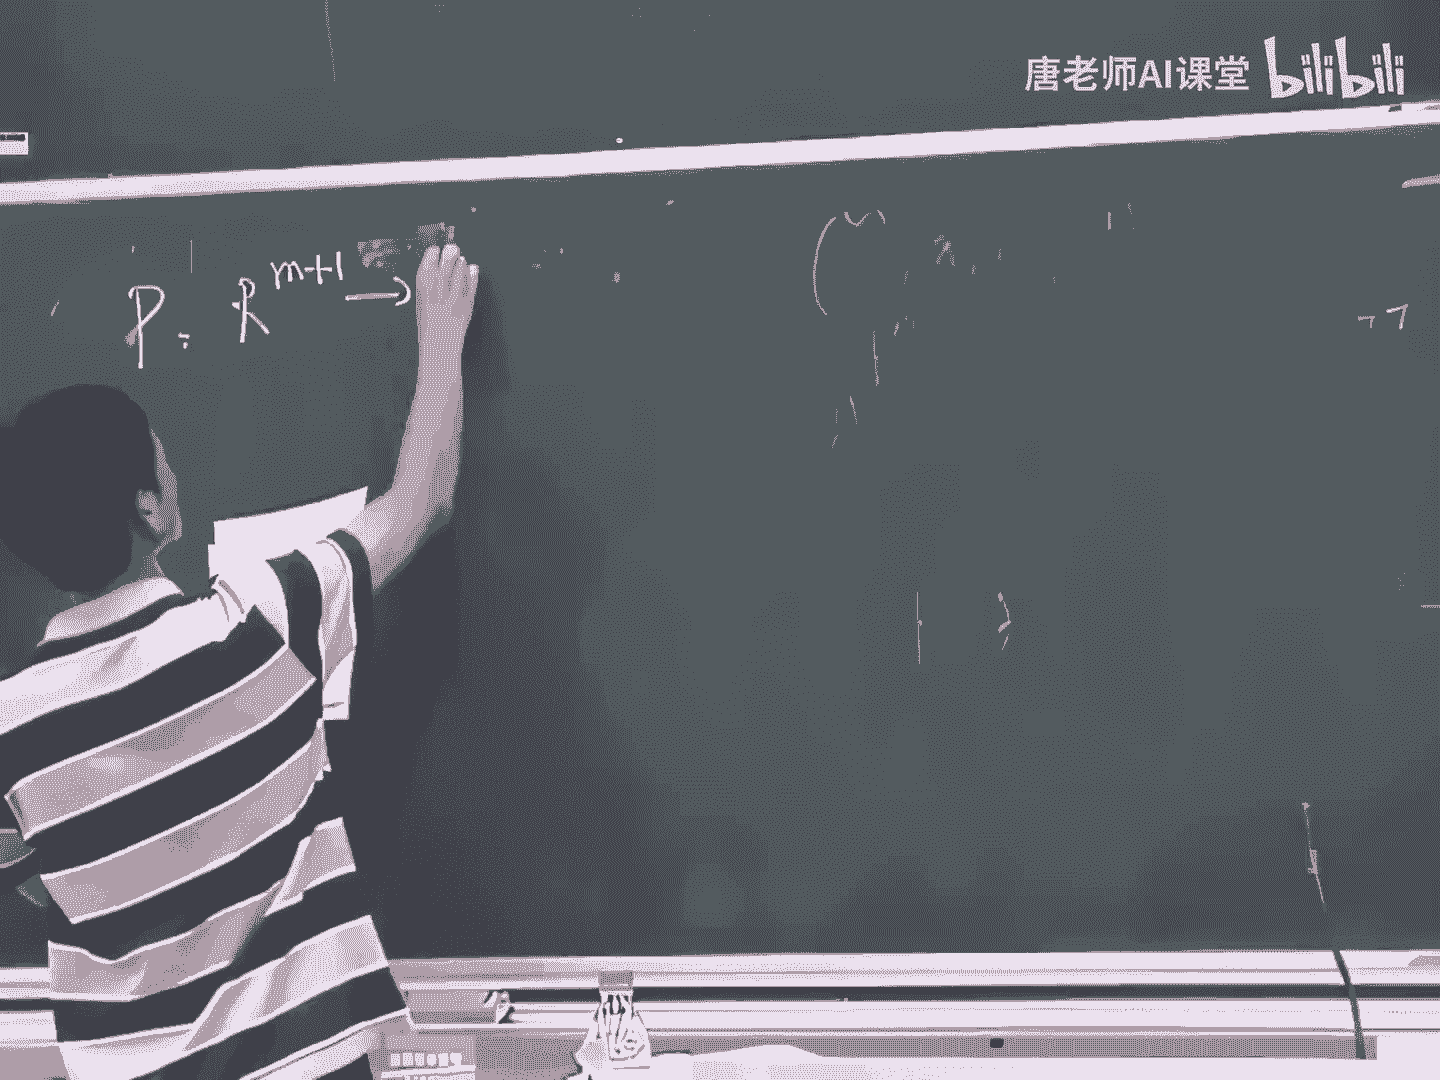 唐老师AI课堂 bilibili
P: R^{m+1} →